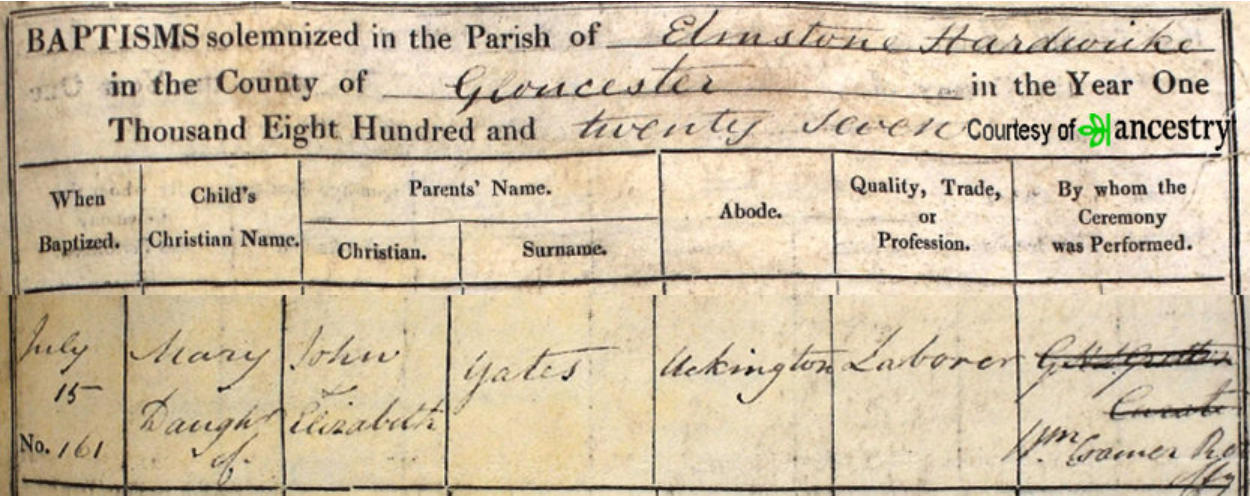 BAPTISMS solemnized in the Parish of Elmstone Hardwicke
in the County of Gloucester in the Year One
Thousand Eight Hundred and twenty seven Courtesy of ancestry
When
Baptized.
Child's
Christian Name.
Parents' Name.
Christian.
Surname.
Abode.
Quality, Trade,
or
Profession.
By whom the
Ceremony
was Performed.
July
15
No. 161
Mary
Daught
of
John
&
Elizabeth
Yates
Uckington
Laborer
Curate
Wm Cramer